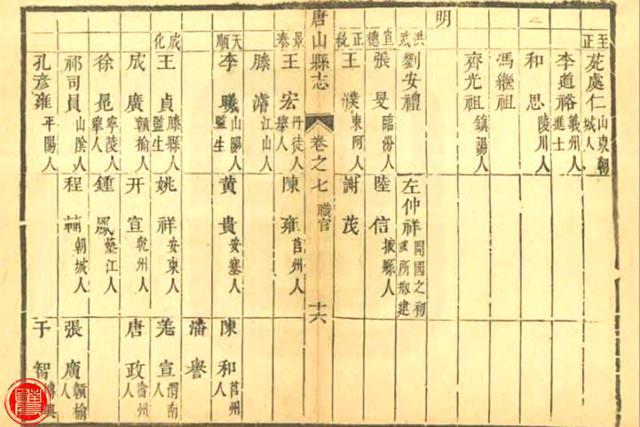 至正
處仁 山東朝城人
李道裕 義州人進士
和思 陵川人
馮繼祖
齊光祖 鎮陽人
明
洪武
劉安禮
左仲祥 開國之初
宣德
張旻 臨汾人
陸信 掖縣人
正統
王濮 東阿人
謝茂
唐山縣志 卷之七 職官 十六
景泰
王宏 丹徒人舉人
陳雍 莒州人
滕濬 江山人
天順
李曦 山陽人監生
黃貴 安塞人
陳和 莒州人
潘譽
成化
王貞 滕縣人監生
姚祥 安東人
宣 渭南人
成廣 贛榆人
开宣 乾州人
唐政 州人
徐晃 寧陵人舉人
鍾鳳 墊江人
祁司員 山陰人
程 朝城人
張廣 贛榆人
孔彥雍 平陽人
于智